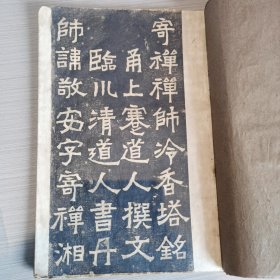 寄禪禪師冷香塔銘
甬上蹇道人撰文
臨川清道人書丹
師諱敬安字寄禪湘